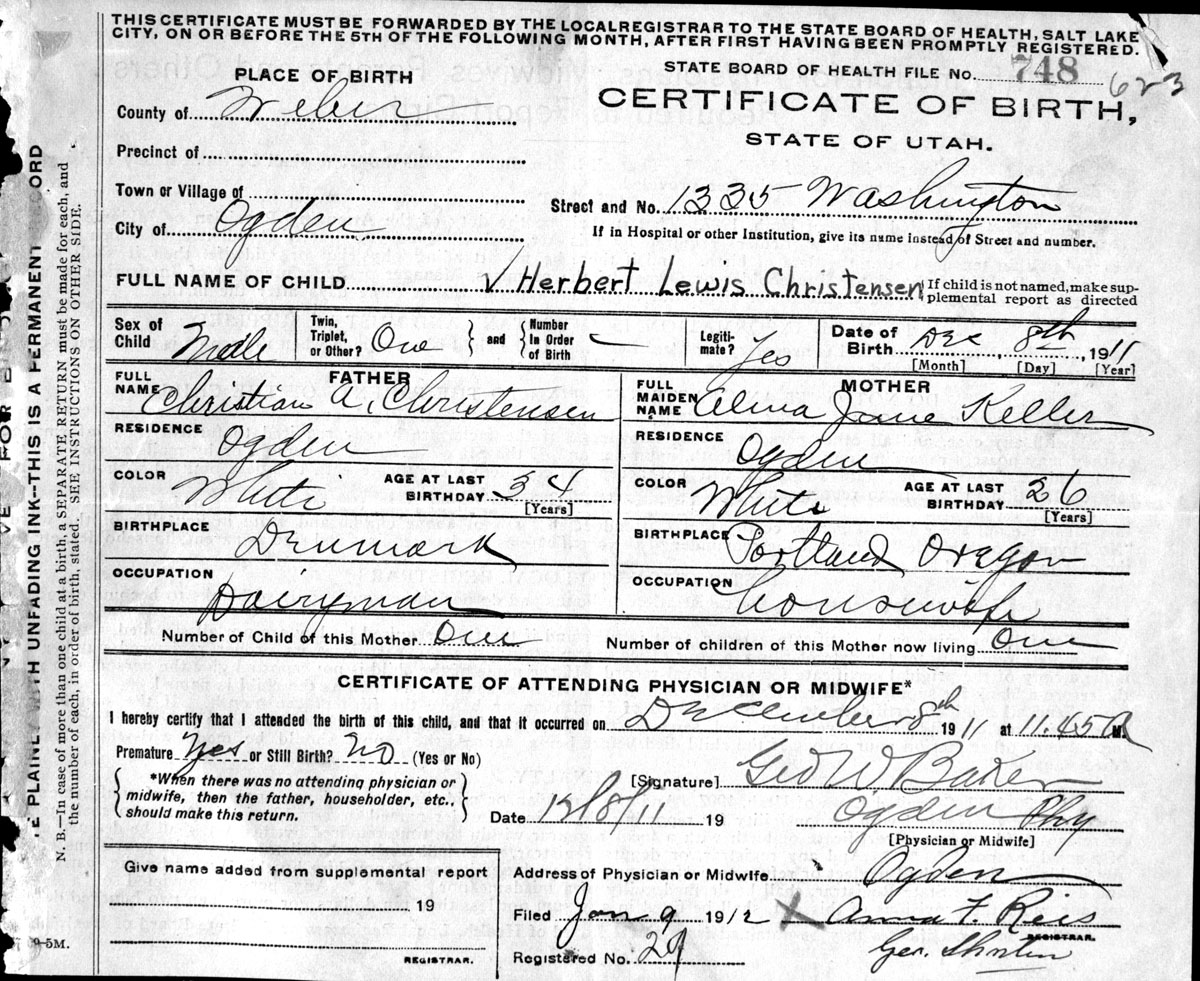 THIS CERTIFICATE MUST BE FORWARDED BY THE LOCAL REGISTRAR TO THE STATE BOARD OF HEALTH, SALT LAKE
CITY, ON OR BEFORE THE 5TH OF THE FOLLOWING MONTH, AFTER FIRST HAVING BEEN PROMPTLY REGISTERED.
PLACE OF BIRTH
STATE BOARD OF HEALTH FILE No. 748 623
County of Weber
CERTIFICATE OF BIRTH,
STATE OF UTAH.
Precinct of
Town or Village of
Street and No. 1335 Washington
City of Ogden
If in Hospital or other Institution, give its name instead of Street and number.
FULL NAME OF CHILD √ Herbert Lewis Christensen If child is not named, make sup-
plemental report as directed
Sex of Child Male
Twin, Triplet, or Other? One and Number In Order of Birth
Legiti-mate? Yes
Date of Birth Dec 8th, 1911
[Month] [Day] [Year]
FATHER
FULL NAME Christian A. Christensen
RESIDENCE Ogden
COLOR White AGE AT LAST BIRTHDAY 34
[Years]
BIRTHPLACE Denmark
OCCUPATION Dairyman
MOTHER
FULL MAIDEN NAME Alma Jane Keller
RESIDENCE Ogden
COLOR White AGE AT LAST BIRTHDAY 26
[Years]
BIRTHPLACE Portland Oregon
OCCUPATION housewife
Number of Child of this Mother One
Number of children of this Mother now living One
CERTIFICATE OF ATTENDING PHYSICIAN OR MIDWIFE*
I hereby certify that I attended the birth of this child, and that it occurred on December 8th 1911 at 11.45 M.
Premature Yes or Still Birth? No (Yes or No)
*When there was no attending physician or
midwife, then the father, householder, etc.,
should make this return.
[Signature] Geo W. Baker
Date 12/8/11 19
Ogden Phy
[Physician or Midwife]
Give name added from supplemental report
19
REGISTRAR.
Address of Physician or Midwife. Ogden
Filed Jan 9 1912 X Anna F. Rees
REGISTRAR.
Registered No. 29
Geo.
E PLAINLY WITH UNFADING INK--THIS IS A PERMANENT RECORD
N. B.—In case of more than one child at a birth, a SEPARATE RETURN must be made for each, and
the number of each, in order of birth, stated. SEE INSTRUCTIONS ON OTHER SIDE.